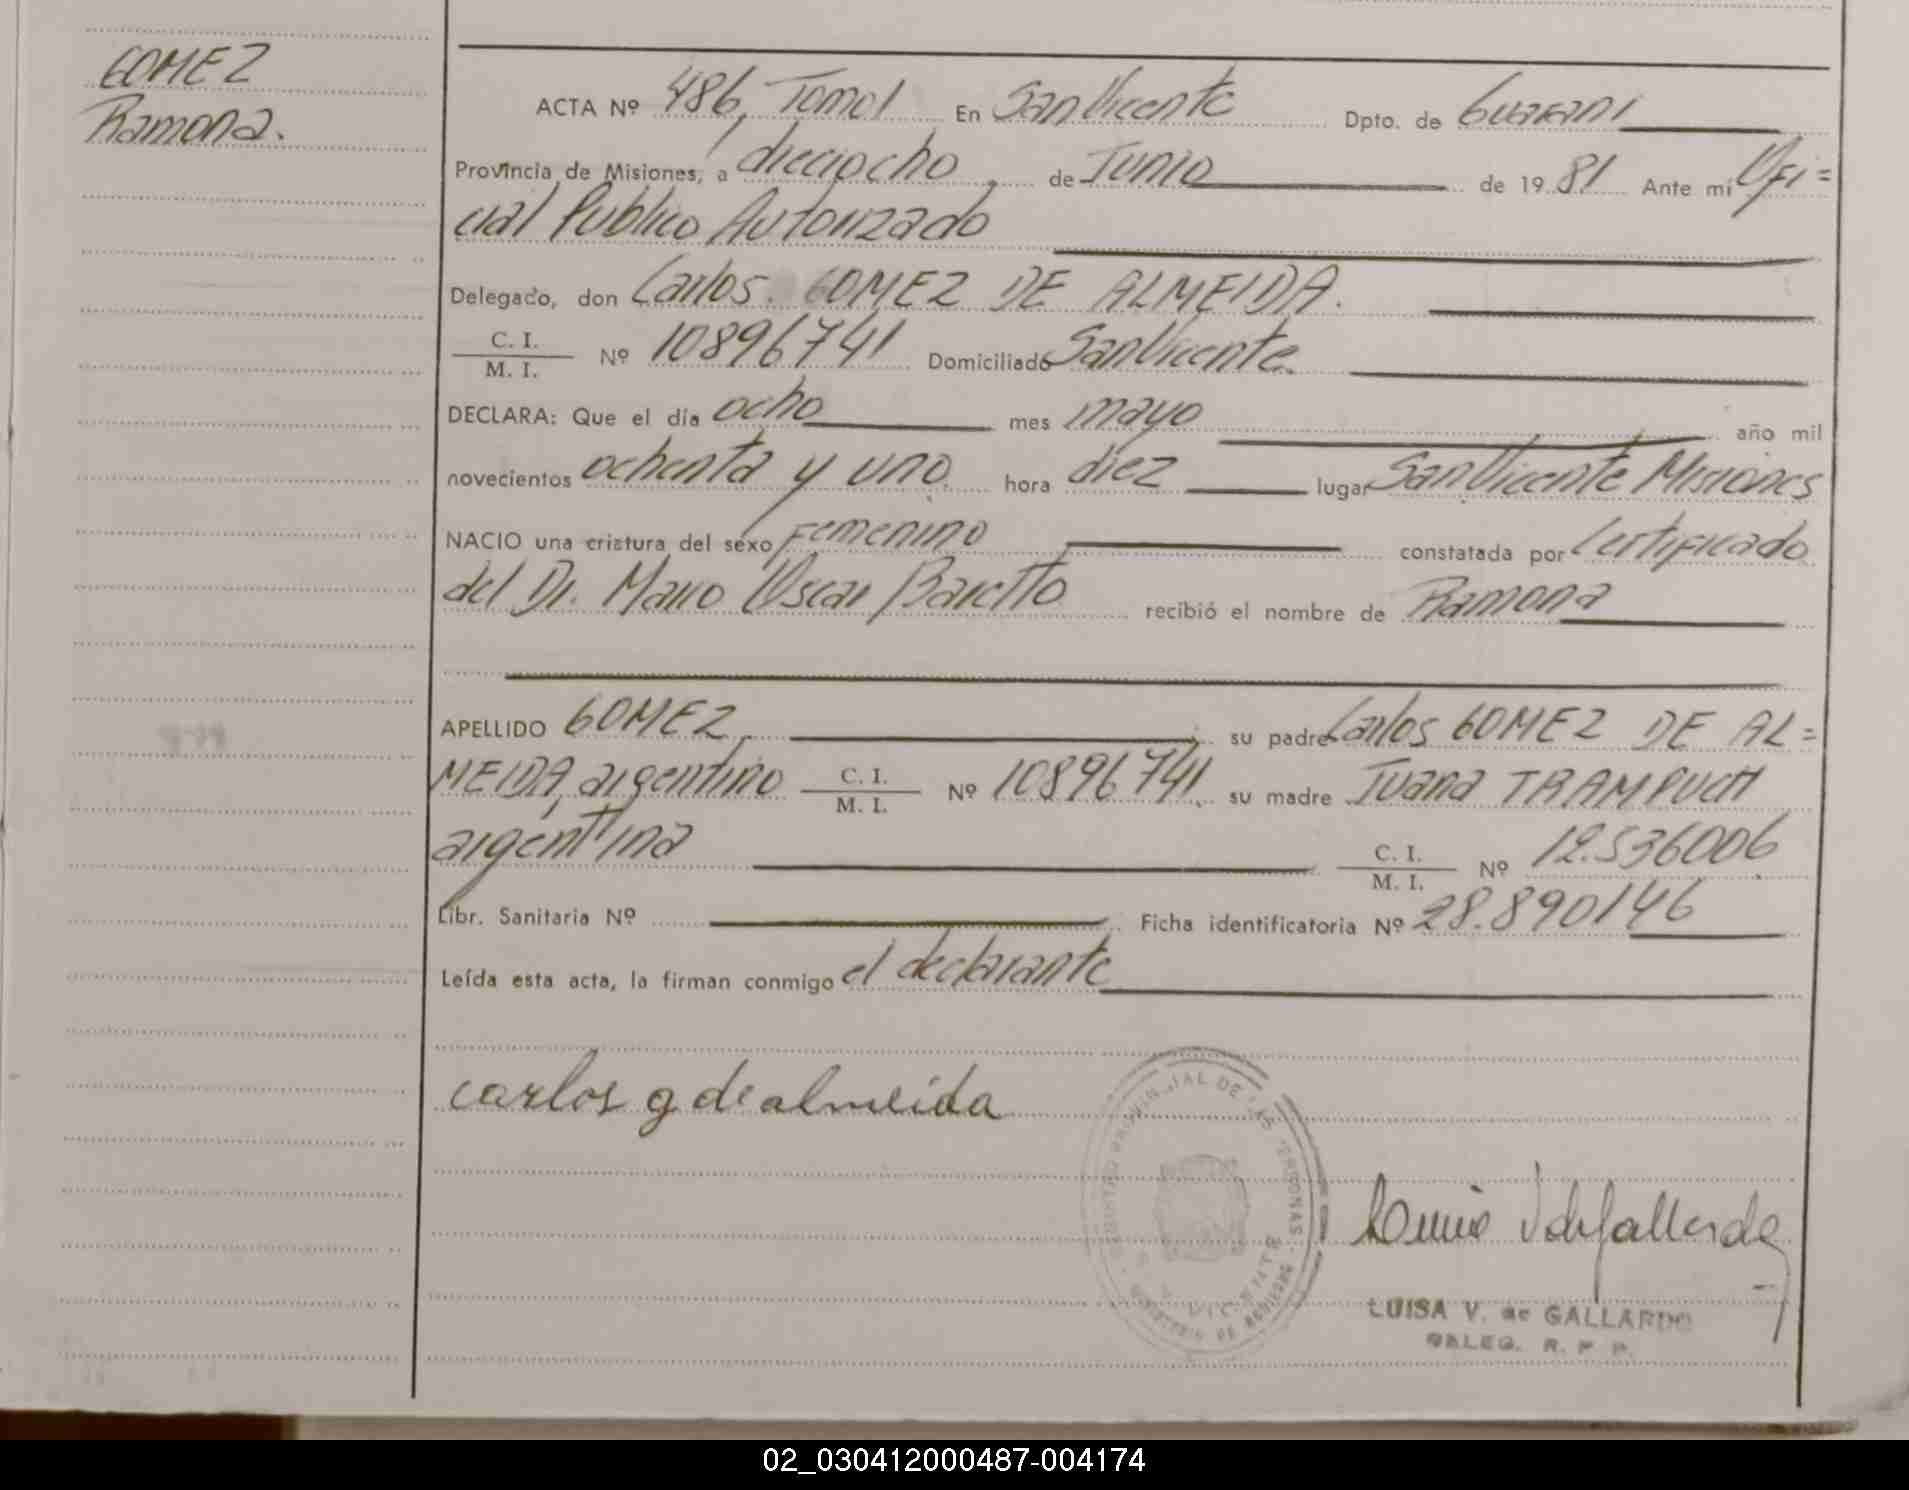 GOMEZ
Ramona.
ACTA Nº 486, Tomo I En San Vicente Dpto. de Guarani
Provincia de Misiones, a dieciocho de Junio de 1981 Ante mi Ofi=
cial Publico Autorizado
Delegado, don Carlos GOMEZ DE ALMEIDA.
C. I.
M. I. Nº 10896741 Domiciliado San Vicente.
DECLARA: Que el día ocho mes mayo año mil
novecientos ochenta y uno. hora diez lugar San Vicente Misiones
NACIO una criatura del sexo Femenino constatada por Certificado
del Dr. Mario Oscar Baretto recibió el nombre de Ramona
APELLIDO GOMEZ, su padre Carlos GOMEZ DE AL=
MEIDA, argentino C. I.
M. I. Nº 10896741, su madre Juana TRAMPUCH
argentina C. I.
M. I. Nº 12.536006
Libr. Sanitaria Nº Ficha identificatoria Nº 28.890146
Leída esta acta, la firman conmigo el declarante
carlos g de almeida
LUISA V. de GALLARDO
DELEG. R. P. P.
02_030412000487-004174